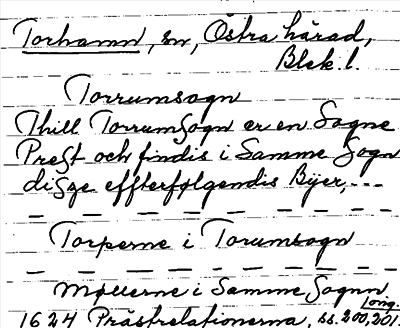 Torhamn, sn, Östra härad,
Blek. l.
Torrumsogn
Thill Torrumsogn er en Sogne
Prest och findis i Samme Sogn
disze effterfølgendis Byer, ---
Torperne i Torumsogn
Møllerne i Samme Sogn
long.
1624 Prästrelationerna, ss. 200, 201.